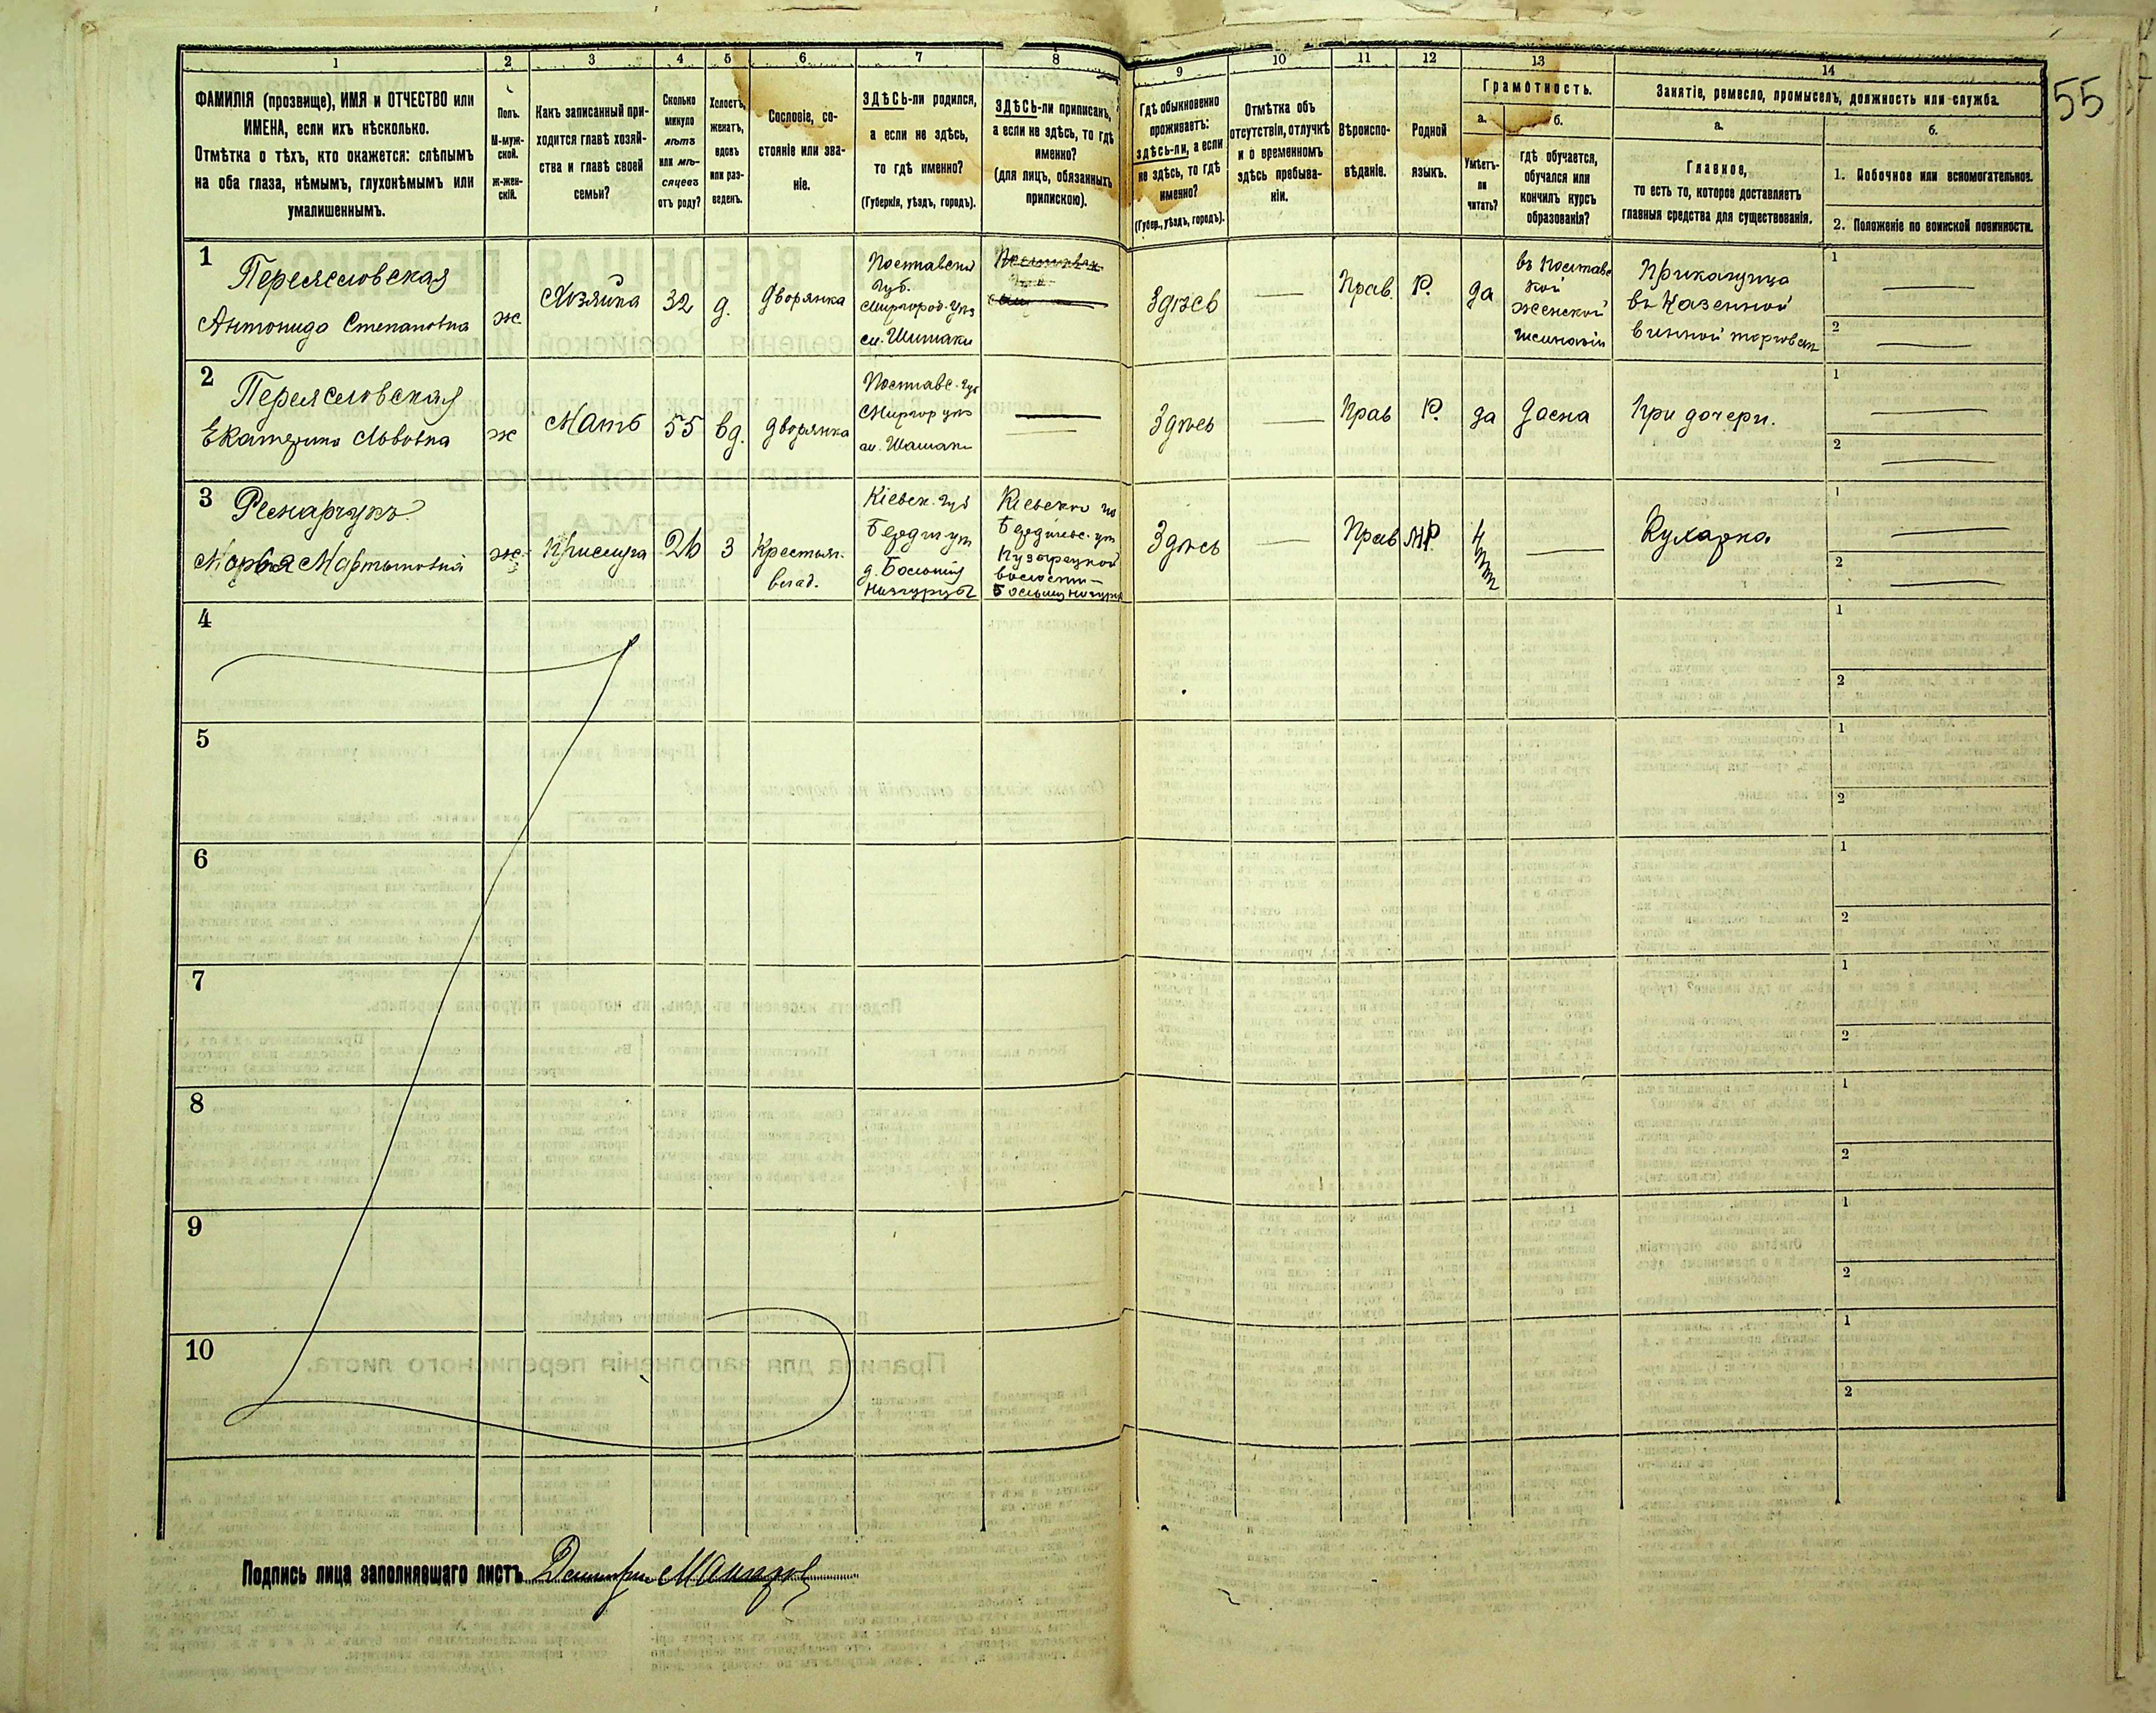 55
1 2 3 4 5 6 7 8 9 10 11 12 13 14
ФАМИЛІЯ (прозвище), ИМЯ и ОТЧЕСТВО или
ИМЕНА, если ихъ нѣсколько.
Отмѣтка о тѣхъ, кто окажется: слѣпымъ
на оба глаза, нѣмымъ, глухонѣмымъ или
умалишеннымъ.
Полъ.
М-муж-
ской.
ж-жен-
скій.
Какъ записанный при-
ходится главѣ хозяй-
ства и главѣ своей
семьи?
Сколько
минуло
лѣтъ
или мѣ-
сяцевъ
отъ роду?
Холостъ,
женатъ,
вдовъ
или раз-
веденъ.
Сословіе, со-
стояніе или зва-
ніе.
ЗДѢСЬ-ли родился,
а если не здѣсь,
то гдѣ именно?
(Губернія, уѣздъ, городъ).
ЗДѢСЬ-ли приписанъ,
а если не здѣсь, то гдѣ
именно?
(для лицъ, обязанныхъ
припискою).
Гдѣ обыкновенно
проживаетъ:
здѣсь-ли, а если
не здѣсь, то гдѣ
именно?
(Губер., уѣздъ, городъ).
Отмѣтка объ
отсутствіи, отлучкѣ
и о временномъ
здѣсь пребыва-
ніи.
Вѣроиспо-
вѣданіе.
Родной
языкъ.
Грамотность.
а.
Умѣетъ-
ли
читать?
б.
гдѣ обучается,
обучался или
кончилъ курсъ
образованія?
Занятіе, ремесло, промыселъ, должность или служба.
а.
Главное,
то есть то, которое доставляетъ
главныя средства для существованія.
б.
1. Побочное или вспомогательное.
2. Положеніе по воинской повинности.
1
Переясловская
Антонида Степановна
ж
Хозяйка
32
д.
дворянка
Полтавска
Губ.
Миргород. уѣз
см. Шишаки
Здѣсь
Прав.
Р.
да
въ Полтавс
кой
женской
гимназіи
Приказчица
въ Казенной
винной торговли
1
2
2
Переясловская
Екатерина Львовна
ж
Мать
55
вд.
дворянка
Полтавс. Губ
Миргор уѣз
Здѣсь
Прав
Р.
да
Дома
При дочери.
1
2
3
Марья Мартыновна
ж
Прислуга
26
З
Крестьян.
влад.
Кіевск. Губ
Бердич уѣз
Здѣсь
Прав
МР.
Нет
Кухарка
1
2
4
1
2
5
1
2
6
1
2
7
1
2
8
1
2
9
1
2
10
1
2
Подпись лица заполнявшаго листъ